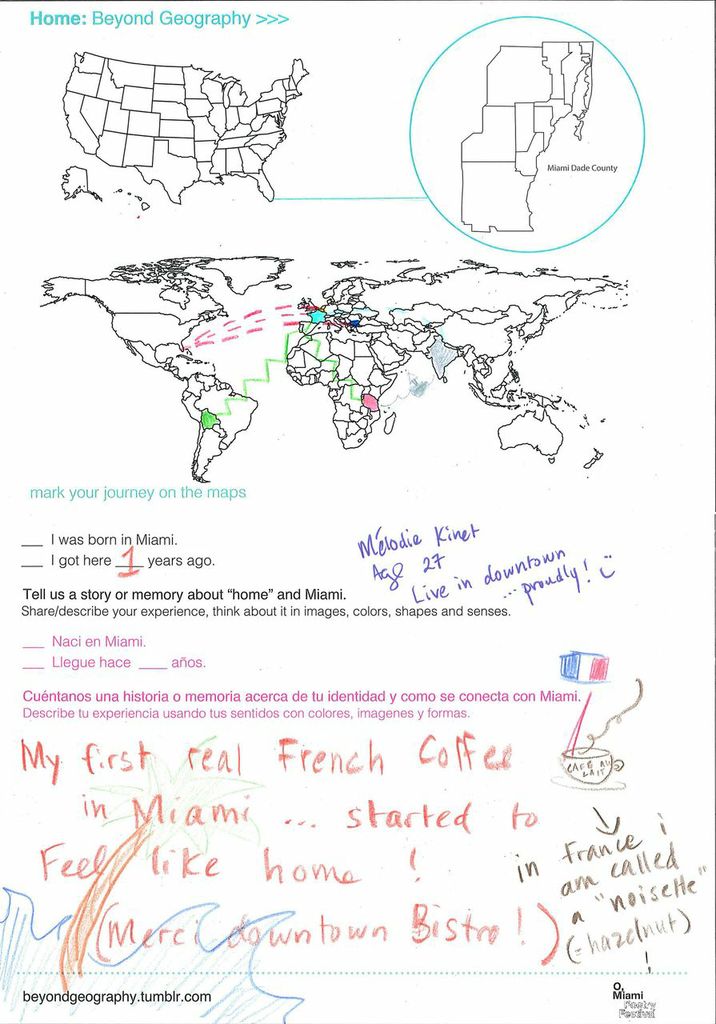 Home: Beyond Geography >>>
Miami Dade County
mark your journey on the maps
___ I was born in Miami.
___ I got here 1 years ago.
Mélodie Kinet
Age 27
Live in downtown
... proudly!
Tell us a story or memory about “home” and Miami.
Share/describe your experience, think about it in images, colors, shapes and senses.
___ Naci en Miami.
___ Llegue hace ____ años.
Cuéntanos una historia o memoria acerca de tu identidad y como se conecta con Miami.
Describe tu experiencia usando tus sentidos con colores, imagenes y formas.
My first real French Coffee
in Miami ... started to
Feel like home !
(Merci downtown Bistro !)
CAFÉ AU
LAIT
in France i
am called
a "noisette"
(= hazelnut)
!
beyondgeography.tumblr.com
O,
Miami
Poetry
Festival